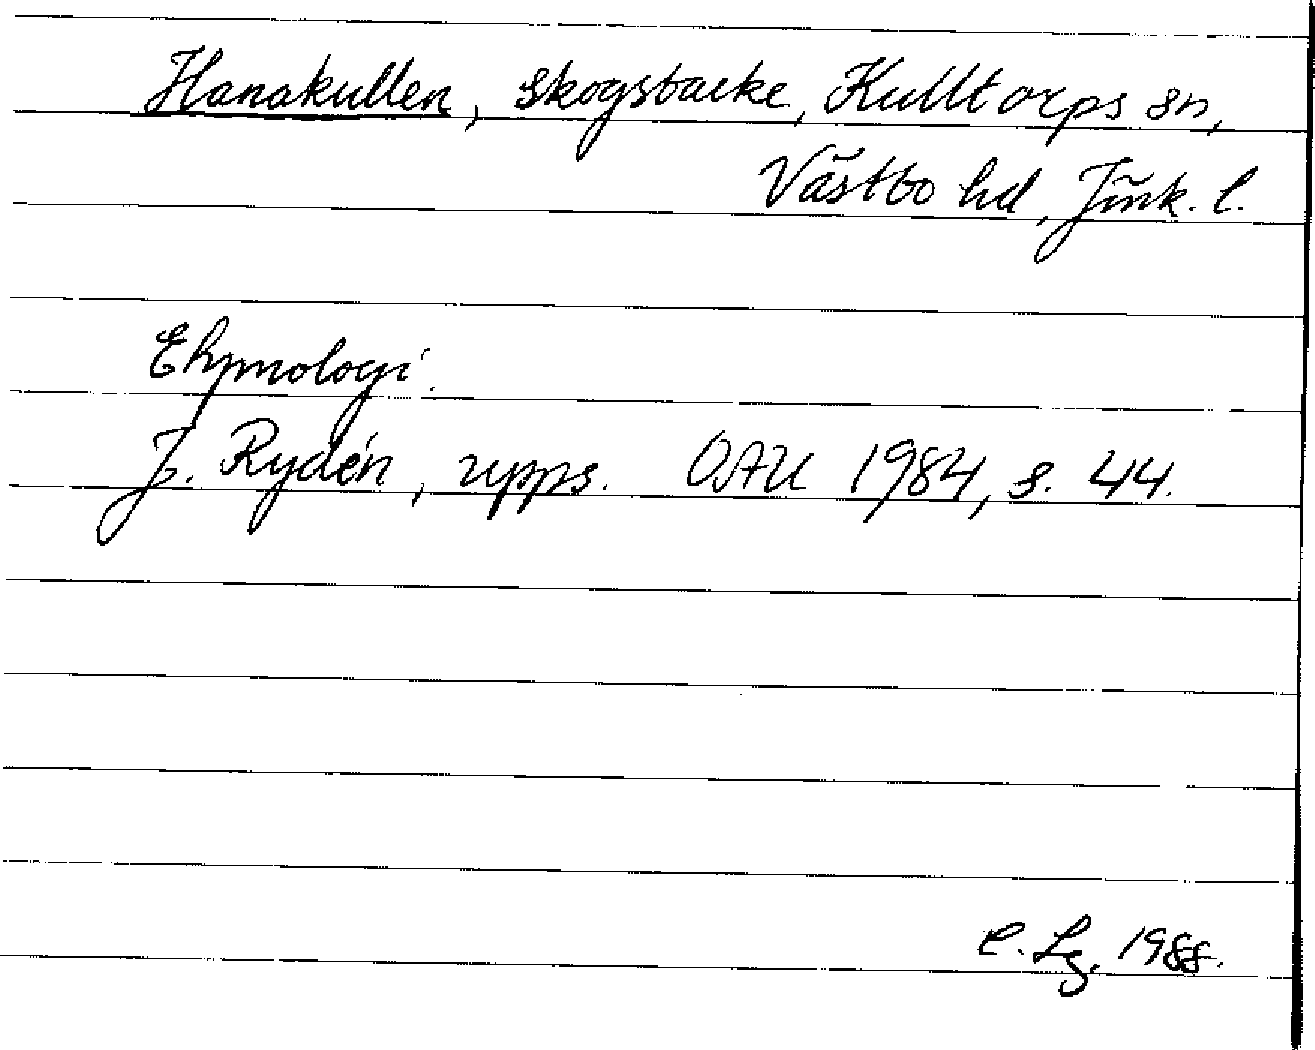 Hanakullen, skogsbacke, Kulltorps sn,
Västbo hd, Jönk. l.
Etymologi.
J. Rydén, upps. OAU 1984, s. 44.
E. Lg. 1988.